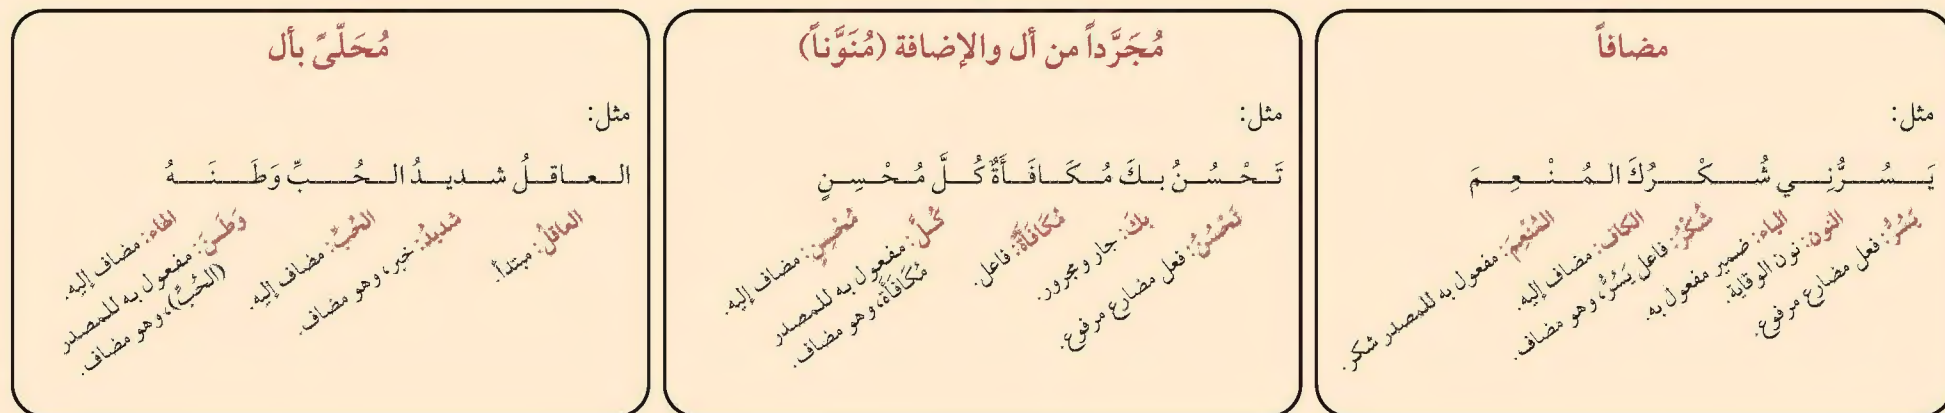 مضافاً
مثل:
يَسُرُّنِي شُكْرُكَ المُنْعِمَ
يَسُرُّ: فعل مضارع مرفوع.
النون: نون الوقاية.
الياء: ضمير مفعول به.
شُكْرُ: فاعل يَسُرُّ، وهو مضاف.
الكاف: مضاف إليه.
المُنْعِمَ: مفعول به للمصدر شكر.
مُجَرَّداً من أل والإضافة (مُنَوَّناً)
مثل:
تَحْسُنُ بكَ مُكَافَأَةٌ كُلَّ مُحْسِنٍ
تَحْسُنُ: فعل مضارع مرفوع.
بكَ: جار ومجرور.
مُكَافَأَةٌ: فاعل.
كُلَّ: مفعول به للمصدر
مُكَافَأَةٌ، وهو مضاف.
مُحْسِنٍ: مضاف إليه.
مُحَلّىً بأل
مثل:
العاقلُ شديدُ الحُبِّ وَطَنَهُ
العاقلُ: مبتدأ.
شديدُ: خبر، وهو مضاف.
الحُبِّ: مضاف إليه.
وَطَنَ: مفعول به للمصدر
(الحُبِّ)، وهو مضاف.
الهاء: مضاف إليه.